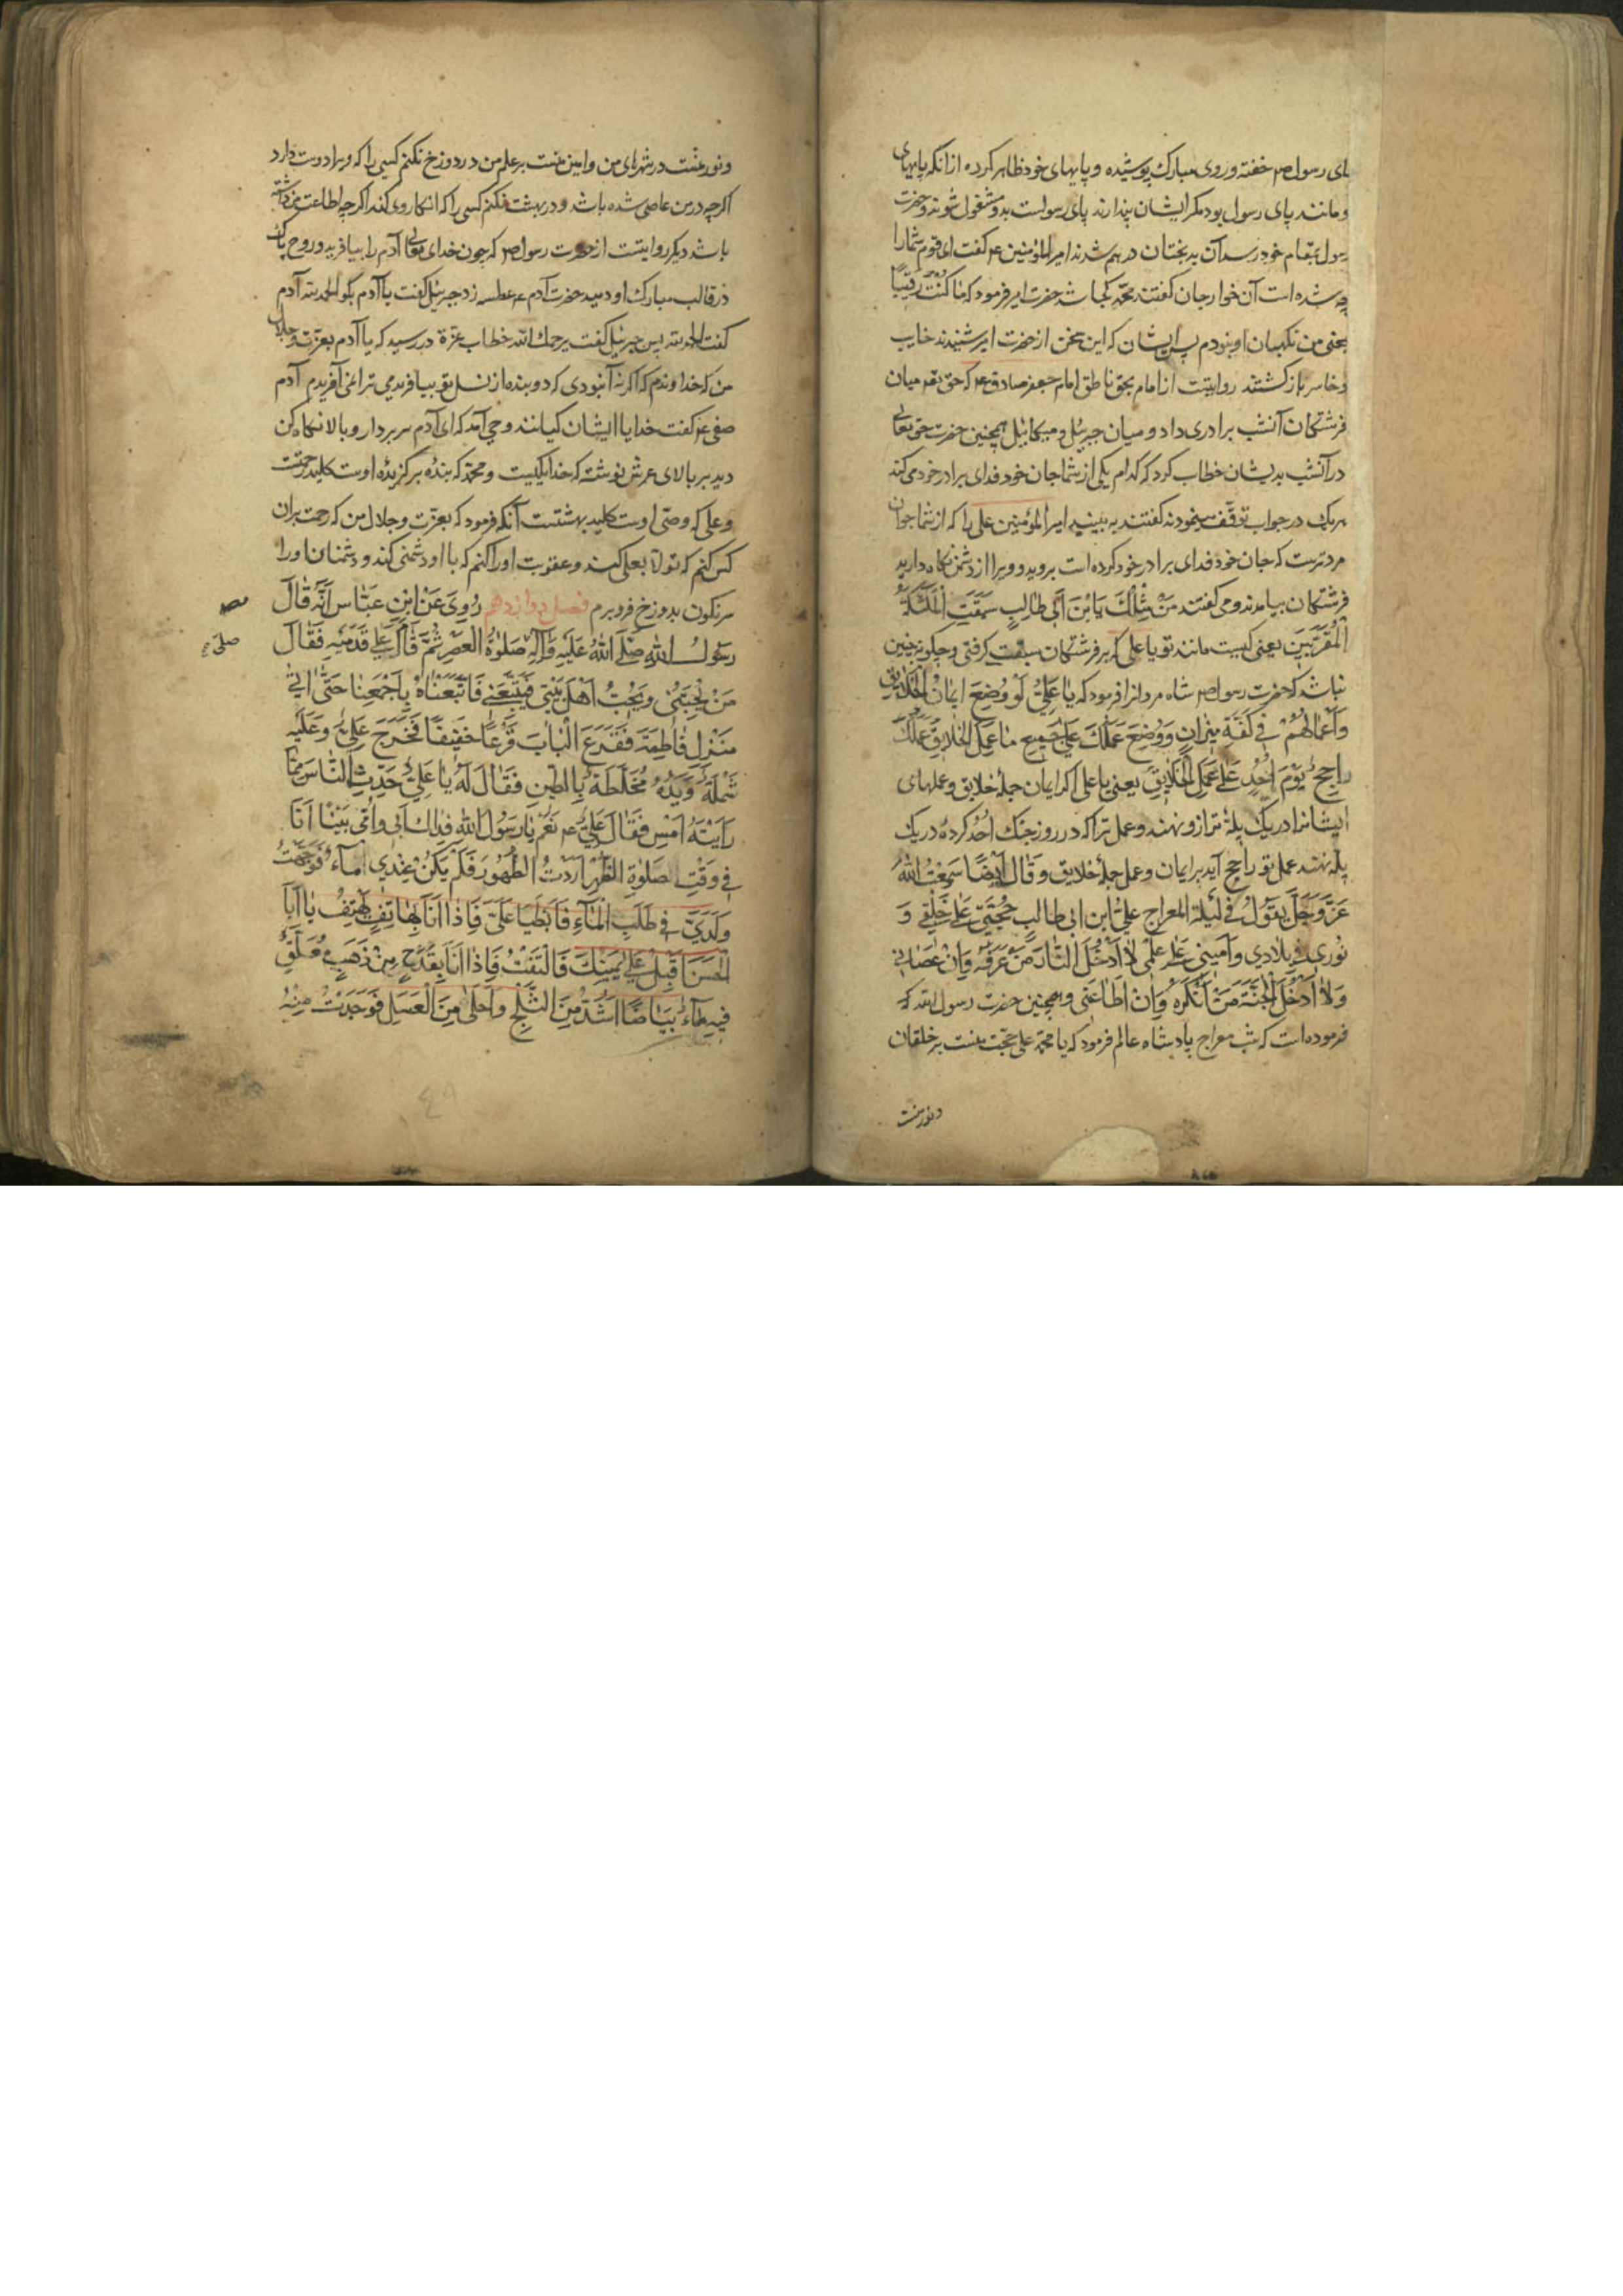 جای رسول ص خفته و روی مبارک پوشیده و پایهای خود ظاهر کرده از آنکه پایهای
او مانند پای رسول بود مکر ایشان پندارند پای رسولست بدو مشغول شوند و حضرت
رسول بمقام خود رسد آن بدبختان درهم شدند امیر المؤمنین ع م کفت ای قوم شما را
چه شده است آن خوارجان کفتند محمد کجا شد حضرت امیر فرمود که ما کنت رقیبا
یعنی من نکهبان او نبودم پس ایشان که این سخن از حضرت امیر شنیدند خایب
و خاسر باز کشتند روایتست از امام بحق ناطق امام جعفر صادق ع م که حق تعم میان
فرشتکان آنشب برادری داد و میان جبرئیل و میکائیل همچنین حضرت حق تعالی
در آنشب بدیشان خطاب کرد که کدام یکی از شما جان خود فدای برادر خود می کند
هریک در جواب توقف مینمودند کفتند به بینید امیر المؤمنین علی را که از شما جوان
مردترست که جان خود فدای برادر خود کرده است بروید و ویرا از دشمن نکاه دارید
فرشتکان بیامدند و می کفتند مَنْ مِثْلُكَ يَابْنَ اَبِي طَالِبٍ سَبَقْتَ المَلَئِكَةَ
المُقَرَّبِينَ یعنی کیست مانند تو یا علی که بر فرشتکان سبقت کرفتی و چکونه چنین
نباشد که حضرت رسول ص م شاه مردانرا فرمود که يَا عَلِيُّ لَوْ وُضِعَ ايمَانُ الخَلَايِقِ
وَاَعْمَالُهُمْ فِي كَفَّةِ مِيزَانٍ وَوُضِعَ عَمَلُكَ عَلَى جَمِيعِ مَا عَمِلَ الخَلَايِقُ عَمَلُكَ
رَاجِحٌ يَوْمَ اُحُدٍ عَلَى عَمَلِ الخَلَايِقِ یعنی یا علی اکر ایمان جملهٔ خلایق و عملهای
ایشانرا در یک پلهٔ ترازو نهند و عمل ترا که در روز جنک اُحُد کردهٔ در یک
پله نهند عمل تو راجح آید بر ایمان و عمل جملهٔ خلایق وَقَالَ اَيْضًا سَمِعْتُ اللهَ
عَزَّ وَجَلَّ يَقُولُ فِي لَيْلَةِ المعراج عَلِيُّ ابن ابی طالب حُجَّتِي عَلَى خَلْقِي وَ
نُورِي فِي بِلَادِي وَاَمِينِي عَلَى عِلْمِي لَا اُدْخِلُ النَّارَ مَنْ عَرَفَهُ وَاِنْ عَصَانِي
وَلَا اُدْخِلُ الجَنَّةَ مَنْ اَنْكَرَهُ وَاِنْ اَطَاعَنِي و همچنین حضرت رسول الله که
فرموده است که شب معراج پادشاه عالم فرمود که یا محمد علی حجت منست بر خلقان
و نور منست
و نور منست در شهرهای من و امین منست بر علم من در دوزخ نکنم کسی را که ویرا دوست دارد
اکرچه در من عاصی شده باشد و در بهشت نکنم کسی را که انکار وی کند اکرچه اطاعت من داشته
باشد دیکر روایتست از حضرت رسول ص م که چون خدای تعالی آدم را بیافرید و روح پاک
در قالب مبارک او دمید حضرت آدم ع م عطسه زد جبرئیل کفت یا آدم بگو الحمد لله آدم
کفت الحمد لله پس جبرئیل کفت یرحمك الله خطاب عزة در رسید که یا آدم بعزت و جلال
من که خداوندم که اکر نه آنبودی که دو بنده از نسل تو بیافریدمی ترا نمی آفریدم آدم
صفی ع م کفت خدایا ایشان کیانند وحی آمد که ای آدم سر بردار و بالا نکاه کن
دید بر بالای عرش نوشته که خدا یکیست و محمد که بندهٔ برکزیدهٔ اوست کلید رحمتست
و علی که وصی اوست کلید بهشتست آنکه فرمود که بعزت و جلال من که رحمت بران
کس کنم که تولا بعلی کند و عقوبت او را کنم که با او دشمنی کند و دشمنان او را
سرنکون بدوزخ فرو برم فصل دوازدهم رُوِيَ عَنْ ابْنِ عَبَّاس اَنَّهُ قَالَ
رَسُولُ اللهِ صَلَّى اللهُ عَلَيْهِ وَآلِهِ صَلوٰةَ العَصْرِ ثُمَّ قَامَ عَلَى قَدَمَيْهِ فَقَالَ
صلی
مَنْ يُحِبُّنِي وَيُحِبُّ اَهْلَ بَيْتِي فَيَتَّبِعْنِي فَاتَّبَعْنَاهُ بِاَجْمَعِنَا حَتَّى اَتَى
مَنْزِلَ فَاطِمَةَ فَقَرَعَ الْبَابَ قَرْعًا خَفِيفًا فَخَرَجَ عَلِيٌّ وَعَلَيْهِ
شَمْلَةٌ وَيَدُهُ مُخَلَّطَةٌ بِالطِّينِ فَقَالَ لَهُ يَا عَلِيُّ حَدِّثِ النَّاسَ مِمَّا
رَاَيْتَهُ اَمْسِ فَقَالَ عَلِيٌّ ع م نَعَمْ يَا رَسُولَ اللهِ فِدَاكَ اَبِي وَاُمِّي بَيْنَا اَنَا
فِي وَقْتِ صَلوٰةِ الظُّهْرِ اَرَدْتُ الطَّهُورَ فَلَمْ يَكُنْ عِنْدِي المَاءُ فَوَجَّهْتُ
وَلَدَيَّ فِي طَلَبِ الْمَاءِ فَاَبْطَيَا عَلَيَّ فَاِذَا اَنَا بِهَاتِفٍ يَهْتِفُ يَا اَبَا
الحَسَنِ اَقْبِلْ عَلَى يَمِينِكَ فَالْتَفَتُّ فَاِذَا اَنَا بِقَدَحٍ مِنْ ذَهَبٍ مُعَلَّقٍ
فِيهِ مَاءٌ بَيَاضًا اَشَدُّ مِنَ الثَّلْجِ وَاَحْلَى مِنَ الْعَسَلِ فَوَجَدْتُ مِنْهُ